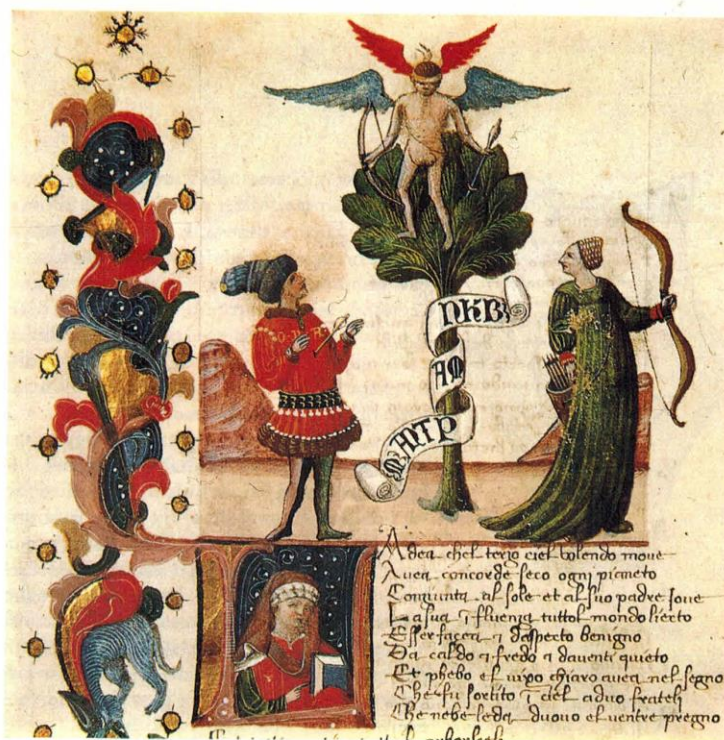 NKB
AM
MATP
A dea chel terzo ciel volendo move
Avea concorde seco ogni pianeto
Congiunta al sole et al suo padre Iove
La sua ifluenza tuttol mondo lieto
Esser facea i daspecto benigno
Da caldo i fredo i da venti quieto
Et phebo el vixo chiaro avea nel segno
Che fu sortito i ciel a duo frateli
Che nebe leda duovo el ventre pregno